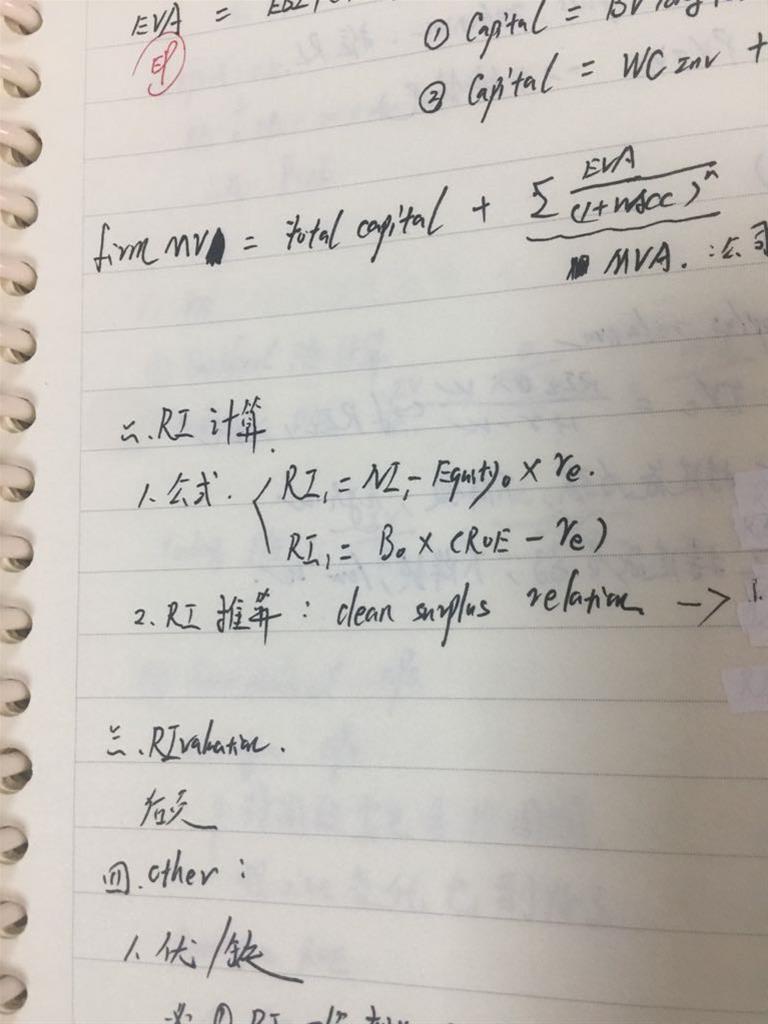 EVA =
EP
① Capital = BV long
② Capital = WC Inv +
firm MV = total capital + ∑ EVA / (1+WACC)^n
MVA. : 公司
二. RI 计算.
1. 公式. RI₁ = NI₁ - Equity₀ × re.
RI₁ = B₀ × (ROE - re)
2. RI 推算 : clean surplus relation → 1.
三. RI valuation.
四. other :
1. 优/缺
① RI